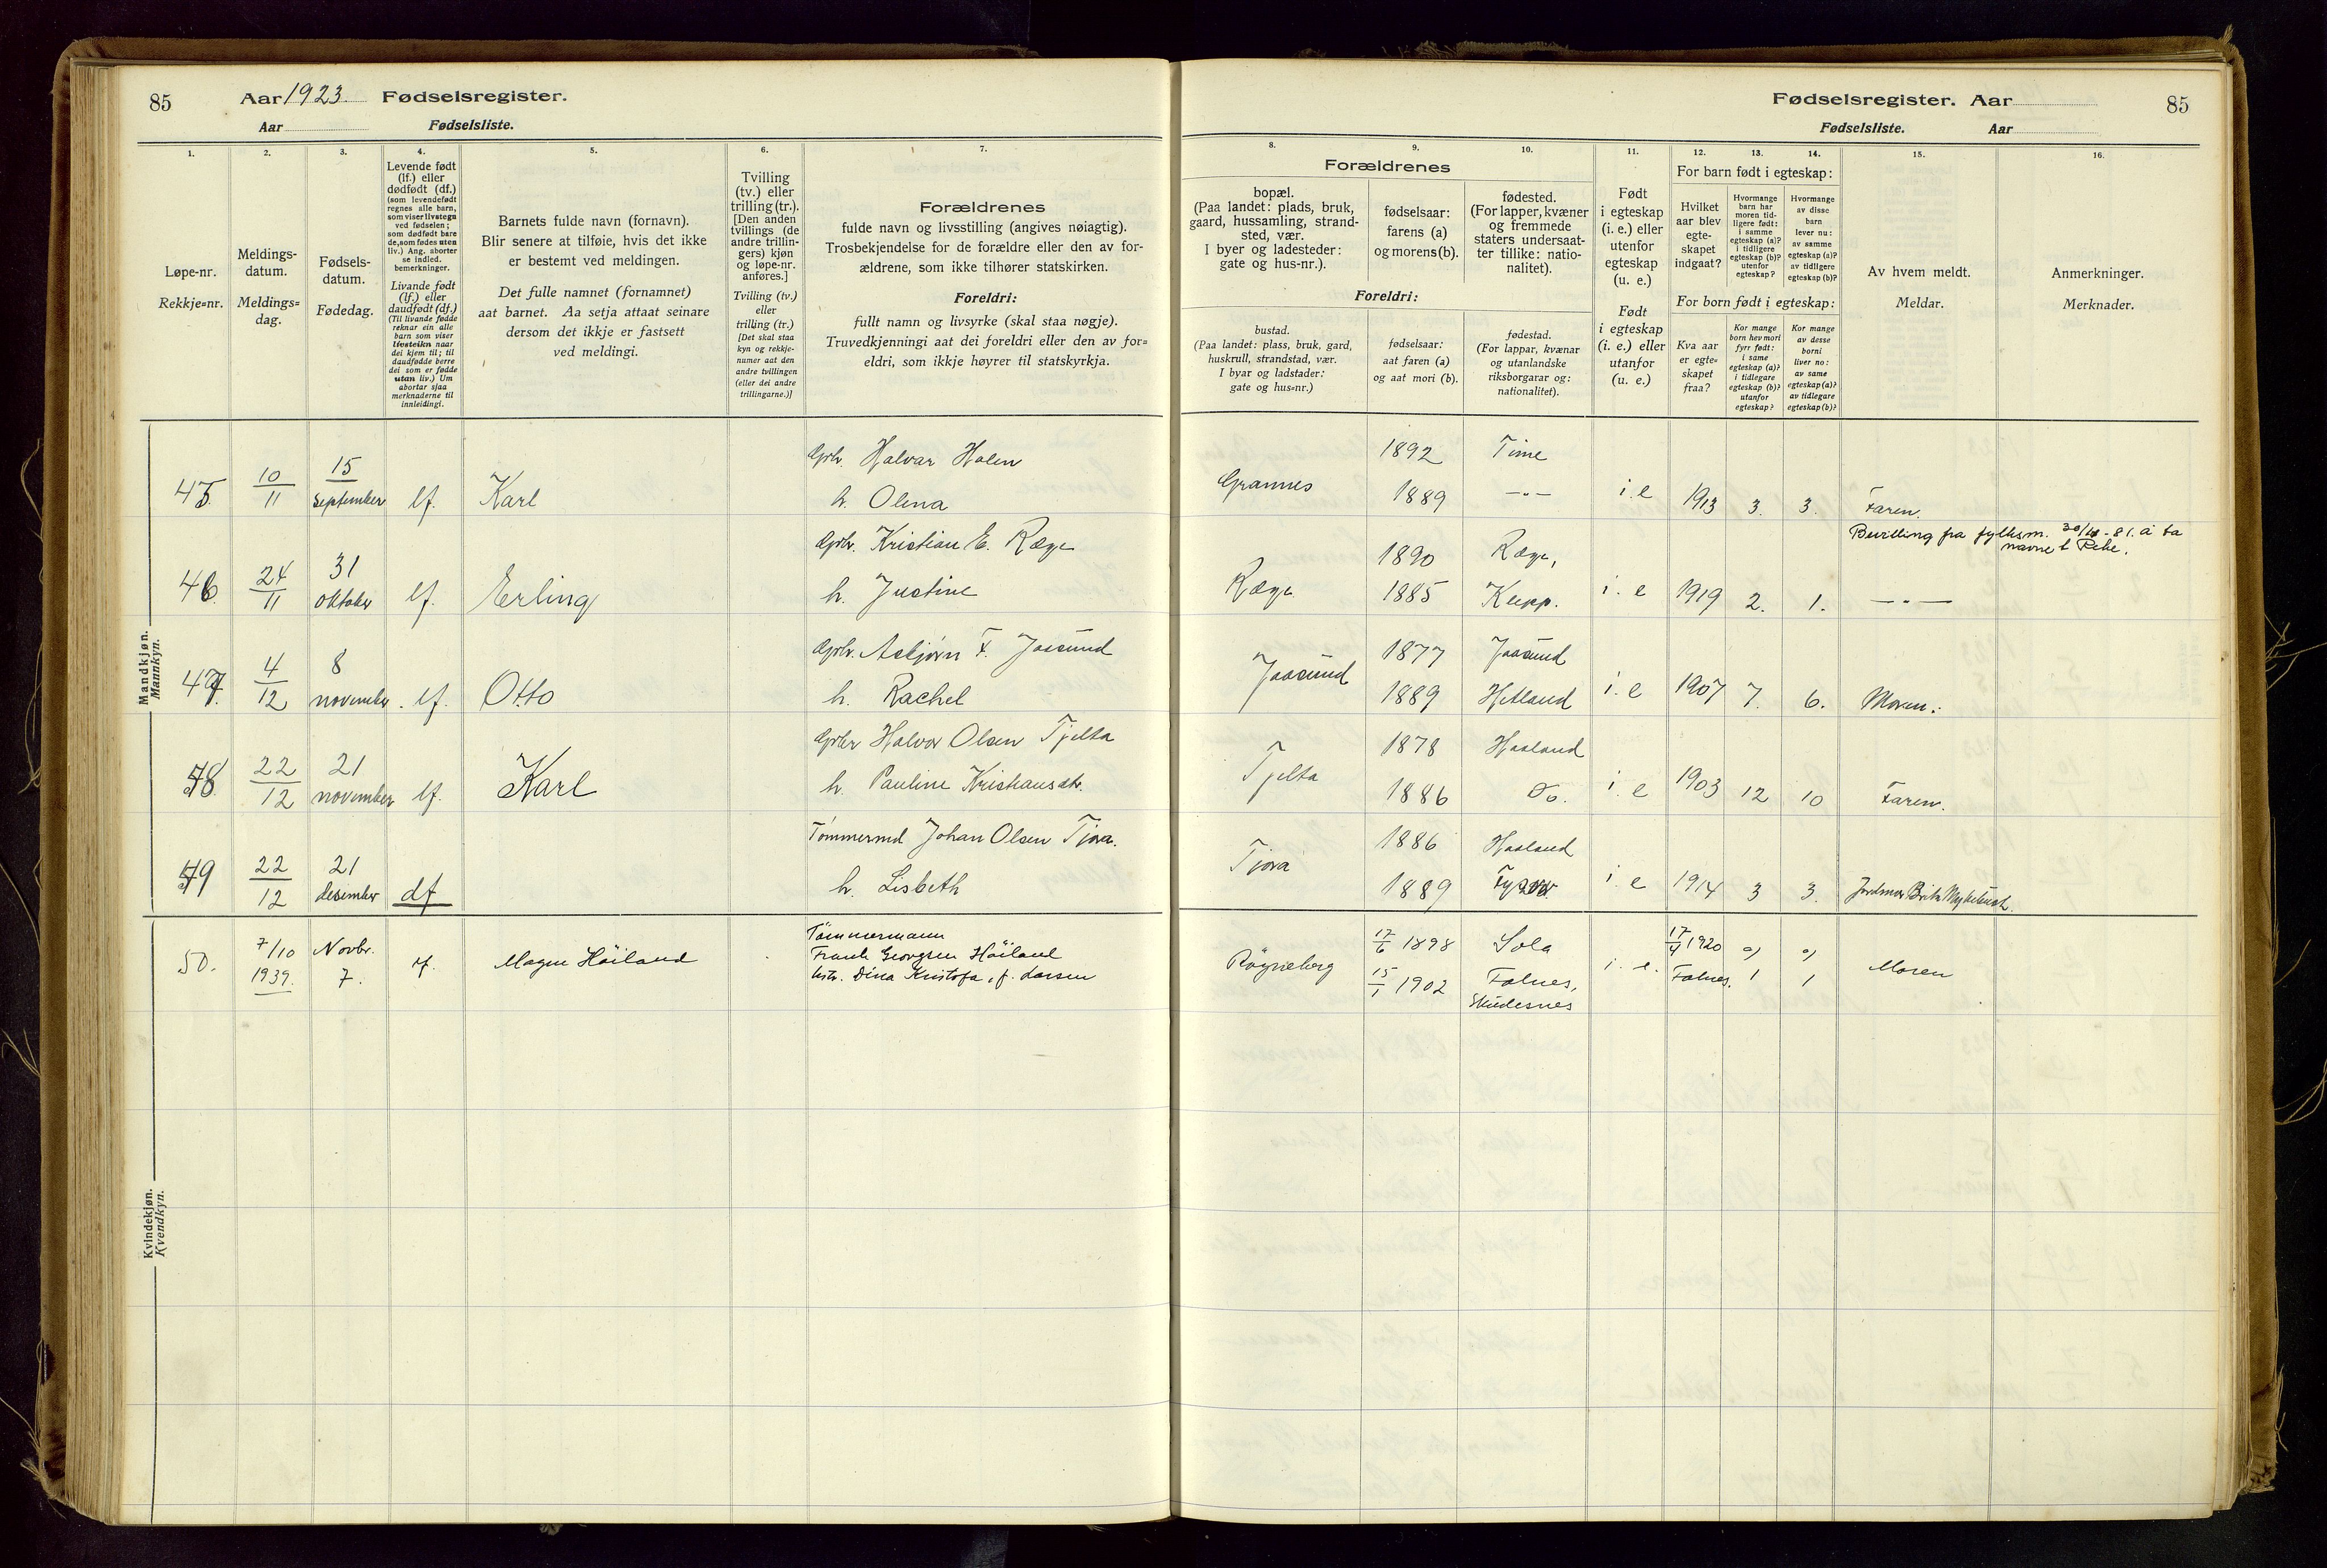 85
Aar 1923. Fødselsregister.
Aar Fødselsliste.
1.
2.
3.
4.
5.
6.
7.
Løpe-nr.
Rekkje=nr.
Meldings-
datum.
Meldings=
dag.
Fødsels-
datum.
Fødedag.
Levende født
(lf.) eller
dødfødt (df.)
(som levendefødt
regnes alle barn,
som viser livstegn
ved fødselen;
som dødfødt bare
de, som fødes uten
liv.) Ang. aborter
se indled.
bemerkninger.
Livande født
(lf.) eller
daudfødt (df.)
(Til livande fødde
reknar ein alle
barn som viser
livsteikn naar
dei kjem til; til
daudfødde berre
dei som er fødde
utan liv.) Um
abortar sjaa
merknaderne til
innleidingi.
Barnets fulde navn (fornavn).
Blir senere at tilføie, hvis det ikke
er bestemt ved meldingen.
Det fulle namnet (fornamnet)
aat barnet. Aa setja attaat seinare
dersom det ikkje er fastsett
ved meldingi.
Tvilling
(tv.) eller
trilling (tr.).
[Den anden
tvillings (de
andre trillin-
gers) kjøn
og løpe-nr.
anføres.]
Tvilling (tv.)
eller
trilling (tr.)
[Det skal staa
kyn og rekkje-
numer aat den
andre tvillingen
(eller dei andre
trillingarne.)]
Forældrenes
fulde navn og livsstilling (angives nøiagtig).
Trosbekjendelse for de forældre eller den av for-
ældrene, som ikke tilhører statskirken.
Foreldri:
fullt namn og livsyrke (skal staa nøgje).
Truvedkjenningi aat dei foreldri eller den av for=
eldri, som ikkje høyrer til statskyrkja.
Fødselsregister. Aar
85
Fødselsliste. Aar
8.
9.
10.
11.
12.
13.
14.
15.
16.
Forældrenes
bopæl.
(Paa landet: plads, bruk,
gaard, hussamling, strand-
sted, vær.
I byer og ladesteder:
gate og hus-nr.).
fødselsaar:
farens (a)
og morens (b).
fødested.
(For lapper, kvæner
og fremmede
staters undersaat-
ter tillike: natio-
nalitet).
Foreldri:
bustad.
(Paa landet: plass, bruk, gard,
huskrull, strandstad, vær.
I byar og ladstader:
gate og hus=nr.)
fødselsaar:
aat faren (a)
og aat mori (b).
fødestad.
(For lappar, kvænar
og utanlandske
riksborgarar og:
nationalitet).
Født
i egteskap
(i. e.) eller
utenfor
egteskap
(u. e.)
Født
i egteskap
(i. e.) eller
utanfor
(u. e.)
For barn født i egteskap:
Hvilket
aar blev
egte-
skapet
indgaat?
Hvormange
barn har
moren tid-
ligere født:
i samme
egteskap (a)?
i tidligere
egteskap (b)?
utenfor
egteskap?
Hvormange
av disse
barn
lever nu:
av samme
egteskap (a)?
av tidligere
egteskap (b)?
For born født i egteskap:
Kva aar
er egte=
skapet
fraa?
Kor mange
born hev mori
fyrr født:
i same
egteskap (a)?
i tidlegare
egteskap (b)?
utanfor
egteskap?
Kor mange
av desse
borni
liver no:
av same
egteskap (a)?
av tidlegare
egteskap (b)?
Av hvem meldt.
Meldar.
Anmerkninger.
Merknader.
Mandkjøn.
Mannkyn.
45 10/11 15 september lf. Karl
Gbr. Halvar Holen
h. Olena
Grannes 1892 Time
1889 -"-
i.e 1913 3. 3. Faren.
Bevilling fra fylksm. 30/11-81. å ta
navnet Rehe.
46. 24/11 31 oktober lf. Erling
Gbr. Kristian E. Ræge
h. Justine
Ræge 1890 Ræge,
1885 Klepp.
i. e 1919 2. 1. -"-
47. 4/12 8 november. lf. Otto
Gbr. Asbjørn F. Joasund
h. Rachel
Joasund 1877 Joasund
1889 Hetland
i. e 1907 7. 6. Moren.
48 22/12 21 november lf. Karl
Gbr Halvor Olsen Tjelta
h. Pauline Kristiansdtr.
Tjelta 1878 Haaland
1886 Do.
i. e 1903 12 10 Faren.
49 22/12 21 desember df
Tømmermd Johan Olsen Tjora.
h. Lisbeth
Tjora 1886 Haaland
1889
i e 1914 3 3.
50. 7/10 1939. Novbr. 7. lf. Magne Höiland
Tömmermann
Frank Georgsen Höiland
hstr. Dina Kristofa, f. Larsen
Röyneberg 17/6 1898 Sola
15/1 1902 Falnes,
Skudesnes
i. e. 17/4 1920 Falnes. a) 1 a) 1 Moren
Kvindekjøn.
Kvendkyn.